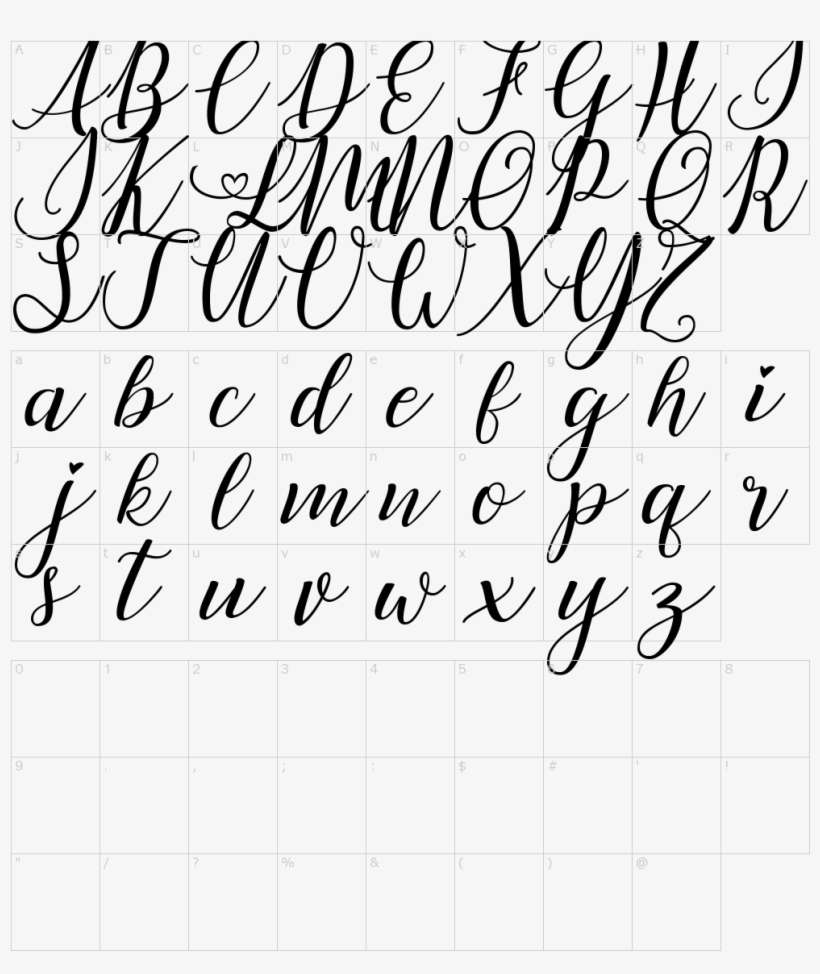 A B C D E F G H I
A B C D E F G H I
J K L M N O P Q R
J K L M N O P Q R
S T U V W X Y Z
S T U V W X Y Z
a b c d e f g h i
a b c d e f g h i
j k l m n o p q r
j k l m n o p q r
s t u v w x y z
s t u v w x y z
0 1 2 3 4 5 6 7 8
9 . , ; : $ # ' !
" / ? % & ( ) @